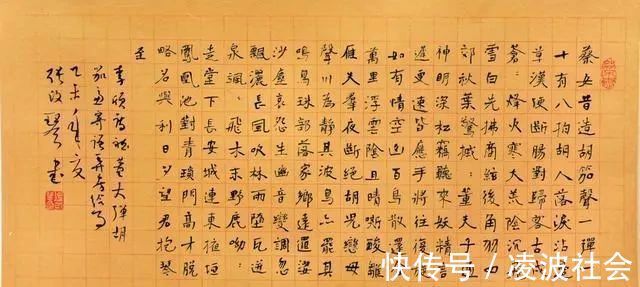 蔡女昔造胡笳聲一彈
十有八拍胡人落淚沾
草漢使斷腸對歸客古
蒼:烽火寒大荒陰沉
雪白先拂商絃後角羽
郊秋葉驚摵:董夫子
神明深松竊聽來妖精
遲更速皆應手將往復
如有情空山百鳥散還
萬里浮雲陰且晴嘶酸雛
雁失羣夜斷絕胡兒戀母
聲川為靜其波鳥亦罷其
鳴烏珠部落家鄉遠邏娑
沙塵哀怨生幽音變調忽
飄灑長風吹林雨墮瓦迸
泉颯:飛木末野鹿呦:
走堂下長安城連東掖垣
鳳凰池對青瑣門高才脫
略名與利日夕望君抱琴
至
李頎聽董大彈胡
笳兼寄語弄房給事
乙未年夏
張改琴書
快传号/凌波社会